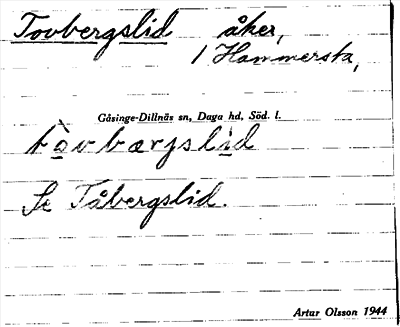 Tovbergslid åker,
1 Hammersta,
Gåsinge-Dillnäs sn, Daga hd, Söd. l.
tòvbærjslìd
Se Tåbergslid.
Artur Olsson 1944